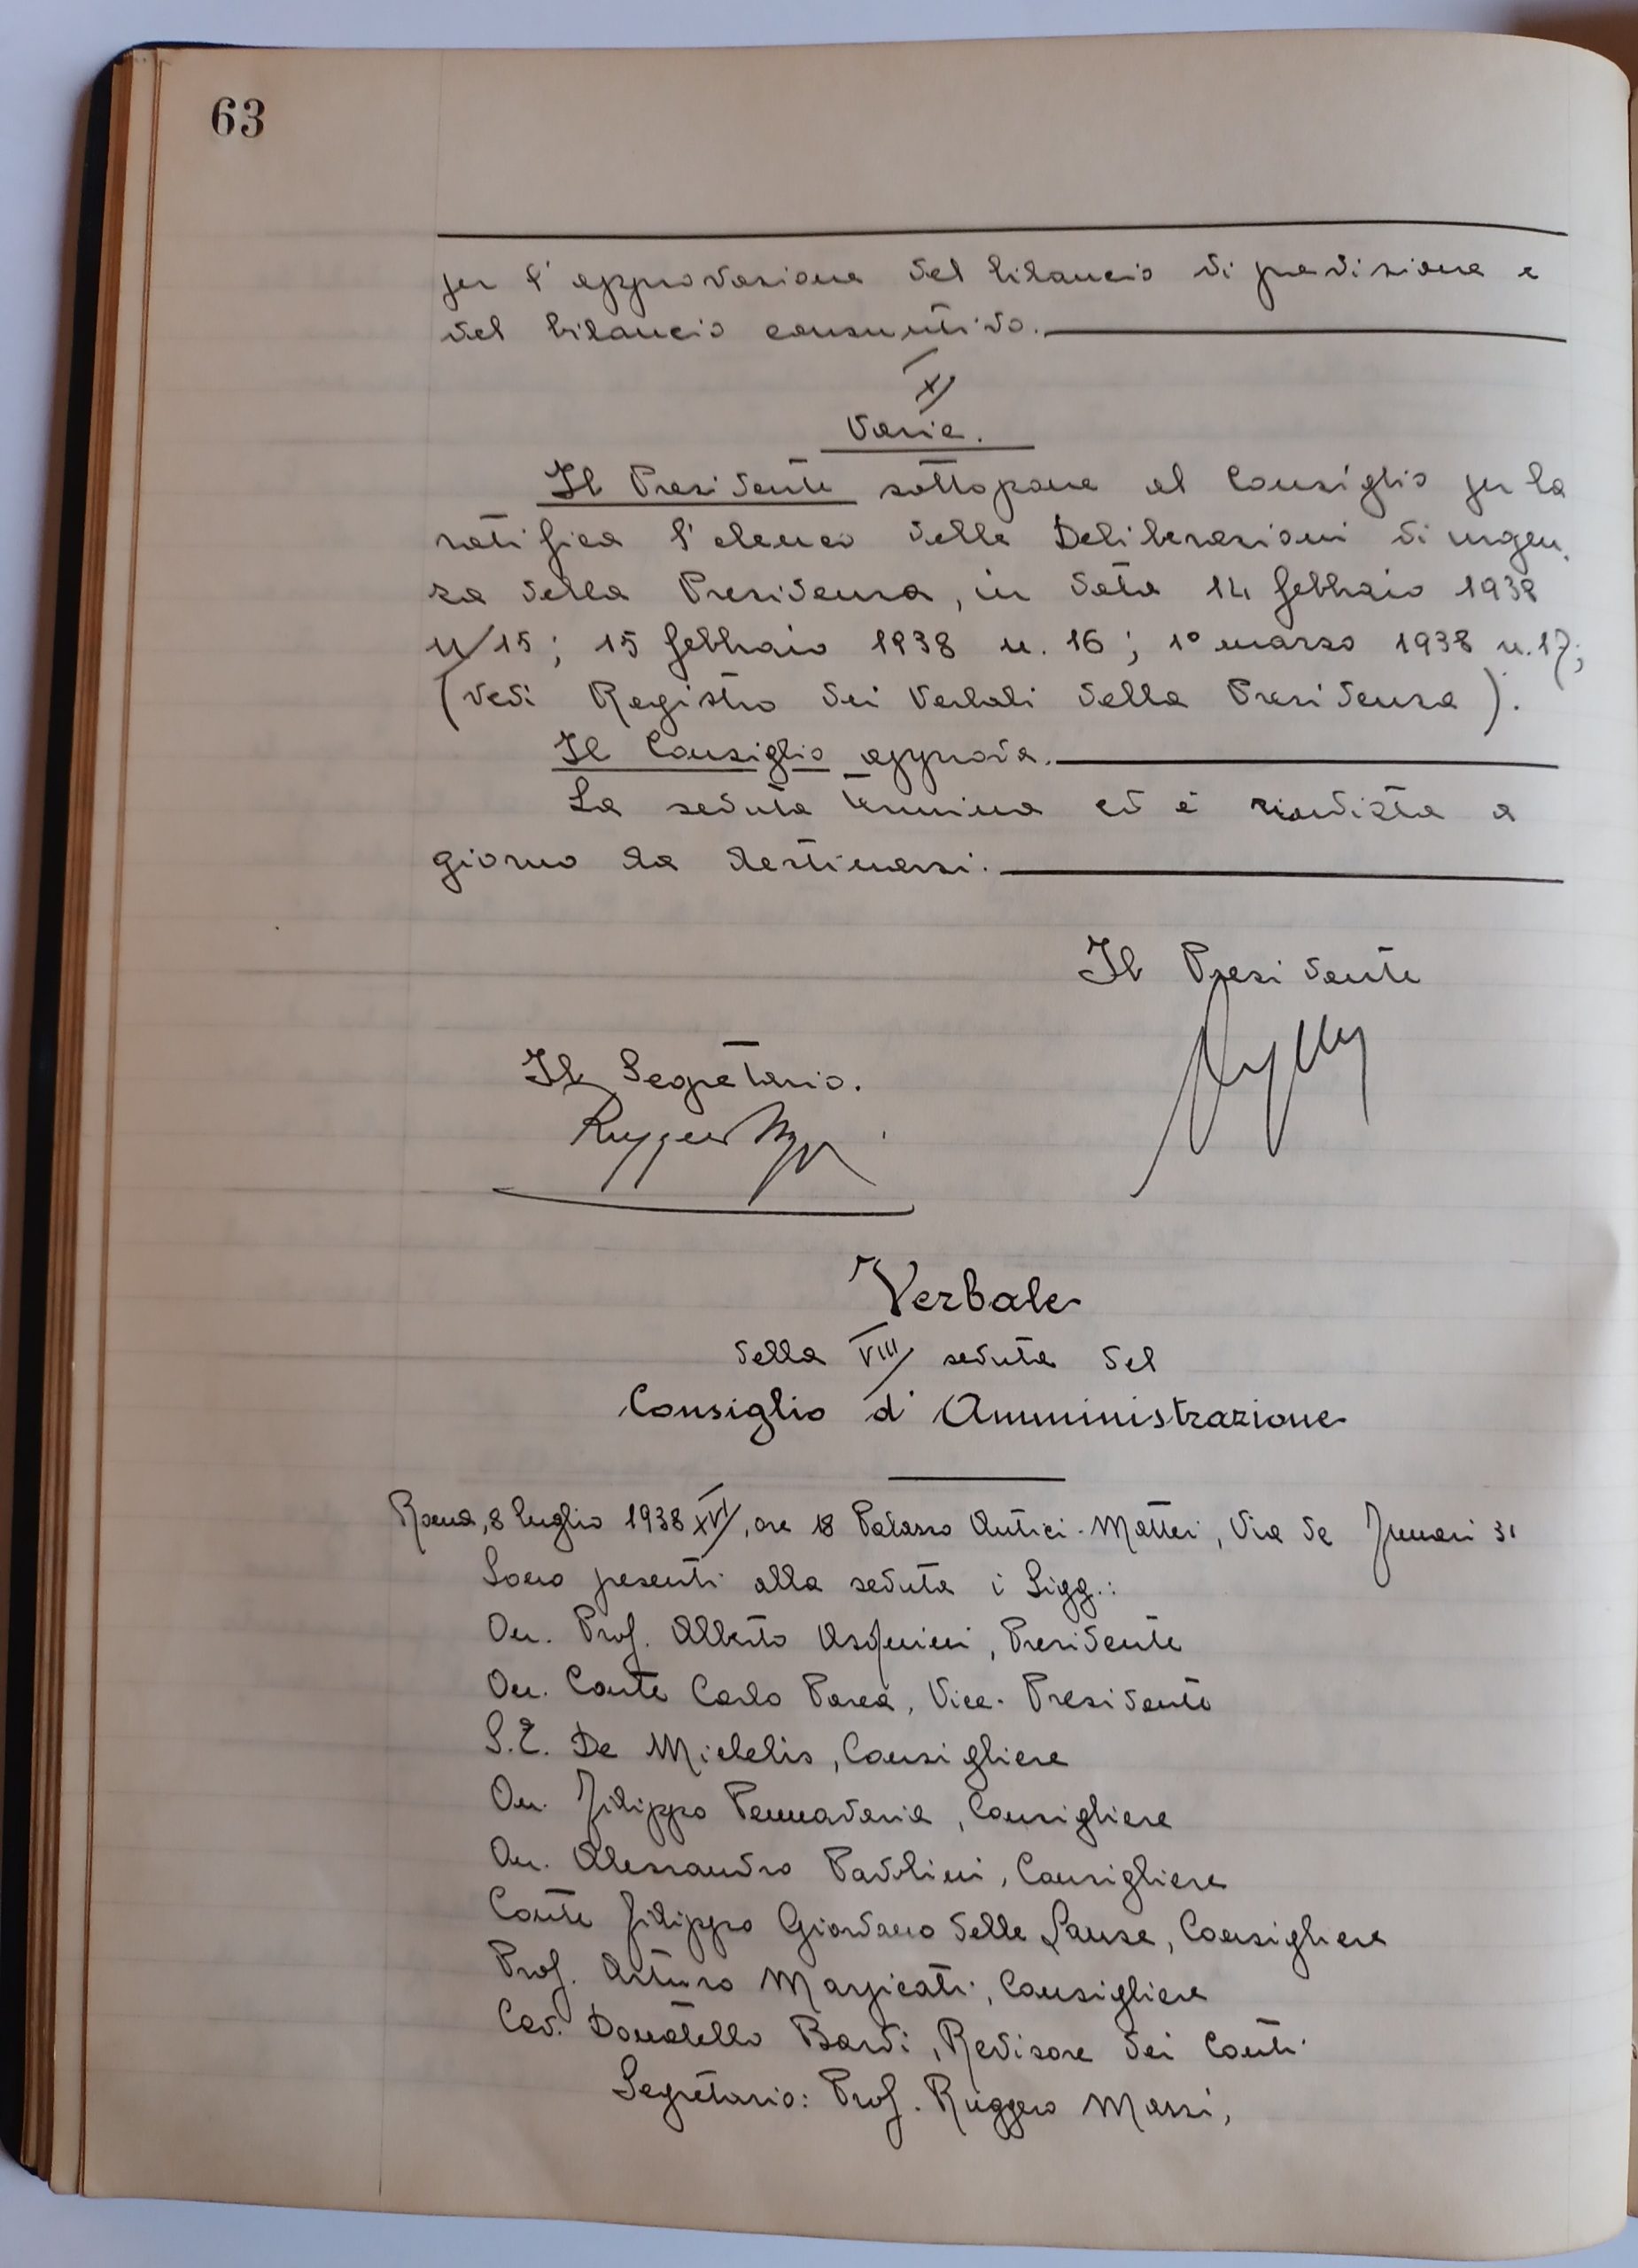 63
per l'approvazione del bilancio di previsione e
del bilancio consuntivo.
X/
Varie.
Il Presidente sottopone al Consiglio per la
ratifica l'elenco delle Deliberazioni di urgen-
za della Presidenza, in data 14 febbraio 1938
n/15; 15 febbraio 1938 n. 16; 1° marzo 1938 n. 17;
(vedi Registro dei Verbali della Presidenza).
Il Consiglio approva.
La seduta termina ed è rinviata a
giorno da destinarsi.
Il Presidente
Il Segretario.
Verbale
della VIII/ seduta del
Consiglio d'Amministrazione
Roma, 8 luglio 1938 XVI/, ore 18 Palazzo Antici-Mattei, Via de Funari 31
Sono presenti alla seduta i Sigg.:
On. Prof. Alberto Asquini, Presidente
On. Conte Carlo Parea, Vice-Presidente
S.E. De Michelis, Consigliere
On. Filippo Pennavaria, Consigliere
On. Alessandro Pavolini, Consigliere
Conte Filippo Giordano delle Lanze, Consigliere
Prof. Arturo Marpicati, Consigliere
Cav. Donatello Bardi, Revisore dei Conti
Segretario: Prof. Ruggero Massi,